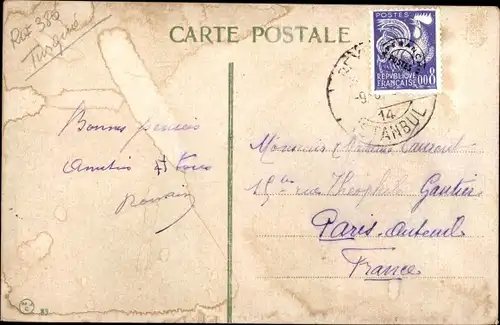 Ref 380
Turquie
CARTE POSTALE
POSTES
RÉPUBLIQUE
FRANÇAISE
0,08
14
ISTANBUL
Bonnes pensées
Amitiés
Romain
Monsieur Laurent
15 rue Théophile Gautier
Paris. Auteuil
France
83